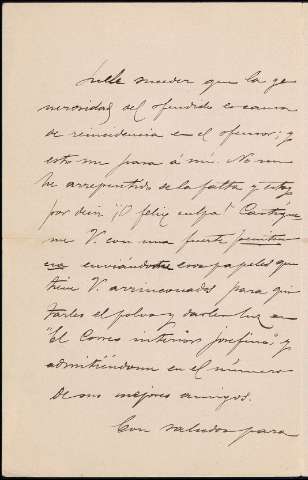 Suele suceder que la ge
nerosidad del ofendido es causa
de reincidencia en el ofensor; y
esto me pasa á mí. No me
he arrepentido de la falta y estoy
por decir ¡O felix culpa! Castígue
me V. con una fuerte
enviándome esos papeles que
tiene V. arrinconados para qui
tarles el polvo y darles luz en
"El Correo interior josefino", y
admitiéndome en el número
de sus mejores amigos.
Con saludos para